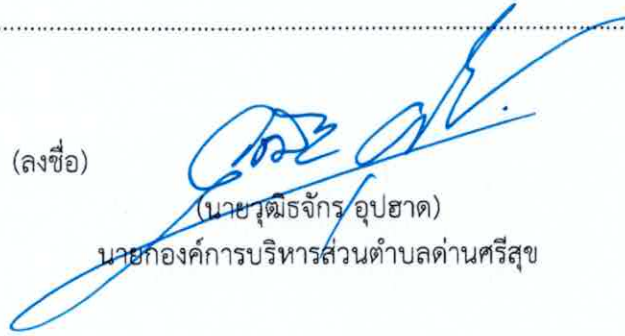 (ลงชื่อ)
(นายวุฒิธจักร อุปฮาด)
นายกองค์การบริหารส่วนตำบลด่านศรีสุข